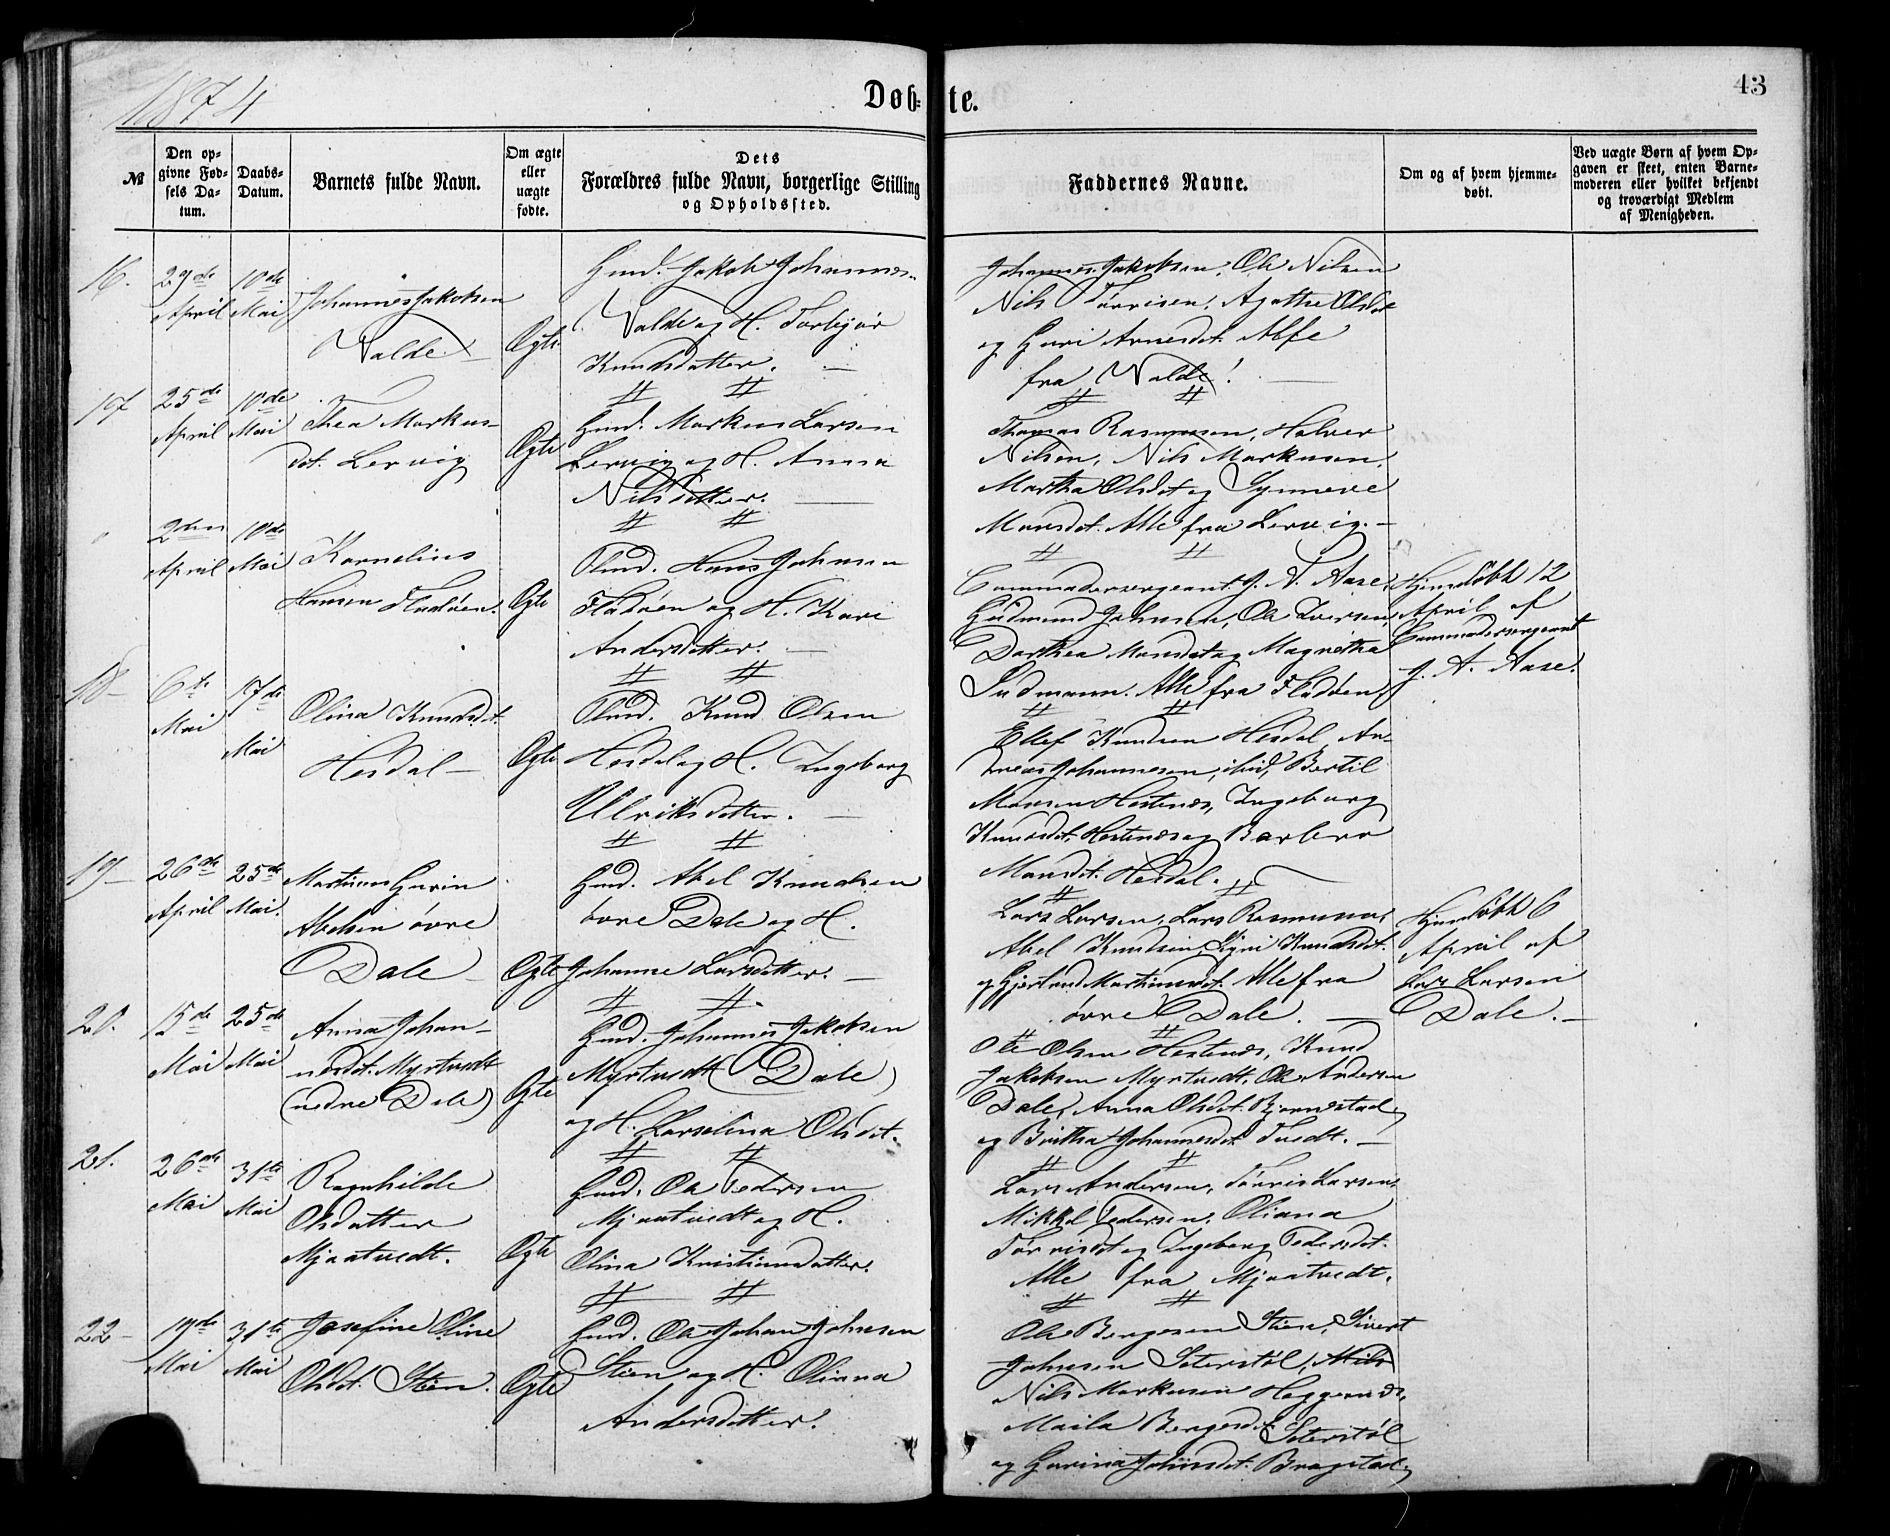 1874
Døb-te.
43
№
Den op-
givne Fød-
sels Da-
tum.
Daabs-
Datum.
Barnets fulde Navn.
Om ægte
eller
uægte
fødte.
Dets
Forældres fulde Navn, borgerlige Stilling
og Opholdssted.
Faddernes Navne.
Om og af hvem hjemme-
døbt.
Ved uægte Børn af hvem Op-
gaven er skeet, enten Barne-
moderen eller hvilket bekjendt
og troværdigt Medlem
af Menigheden.
16.
29de
April
10de
Mai
Johannes Jakobsen
Valde.
Ægte
Gmd. Jakob Johannes-
Valde og H. Torbjør
Knudsdatter.
Johannes Jakobsen, Ole Nilsen
Nils Tørrisen, Agathe Olsdot
og Guri Arnesdot. Alle
fra Valde.
17
25de
April
10de
Mai
Thea Markus-
dot. Lervig
Ægte
Gmd. Markus Larsen
Lervig og H. Anna
Nilsdatter.
Thomas Rasmussen, Halvor
Nilsen, Nils Markusen,
Martha Olsdot og Synneve
Monsdot. Alle fra Lervig.
2den
April
10de
Mai
Kornelius
Hansen Fladøen.
Ægte
Plmd. Hans Johnsen
Fladøen og H. Kari
Andersdatter.
Commandersergeant J. A. Aase,
Gudmund Johnsen, Ole Iversen,
Dorthea Monsdot og Magnetha
Gudmann. Alle fra Fladøen,
Hjemdøbt 12
April af
Commandersergeant
J. A. Aase.
18
6te
Mai
17de
Mai
Olina Knudsdot.
Hesdal
Ægte
Plmd. Knud Olsen
Hesdal og H. Ingeborg
Ulriksdatter.
Ellef Knudsen Hesdal, An-
dreas Johannesen, ibid, Bertil
Monsen Hestenes, Ingeborg
Knudsdot. Hestenes og Barbro
Monsdot. Hesdal.
19
26de
April
25de
Mai.
Martinus Gurin
Abelsen øvre
Dale
Ægte
Gmd. Abel Knudsen
øvre Dale og H.
Johanne Larsdatter.
Lars Larsen, Lars Rasmussen,
Abel Knudsen, Siri Knudsdot.
og Gjertrud Martinusdot. Alle fra
øvre Dale.
Hjemdøbt 6
April af
Lars Larsen
Dale.
20.
15de
Mai
25de
Mai
Anna Johan-
nesdot. Myrtvedt
(nedre Dale)
Ægte
Gmd. Johannes Jakobsen
Myrtvedt (Dale)
og H. Larselina Olsdot.
Ole Olsen Hestenes, Knud
Jakobsen Myrtvedt, Ole Andersen
Dale, Anna Olsdot. Bjørnestad
og Britha Johannesdot Tvedt.
21.
26de
Mai
31te
Mai
Ragnhilde
Olsdatter
Mjaatvedt.
Ægte
Gmd. Ole Pedersen
Mjaatvedt og H.
Olina Kristiansdatter.
Lars Andersen, Tørris Larsen,
Mikkel Pedersen, Oliana
Tørrisdot og Ingeborg Pedersdot.
Alle fra Mjaatvedt.
22
19de
Mai
31te
Mai
Josefine Oline
Olsdot. Steen.
Ægte
Gmd. Ole Johan Johnsen
Steen og H. Oliana
Andersdatter.
Ole Bergesen Steen, Sivert
Johnsen Seterstøl, Nils
Nils Markusen Heggernes,
Maila Bergesdot Seterstøl
og Gurina Johnsdot. Bragstad,